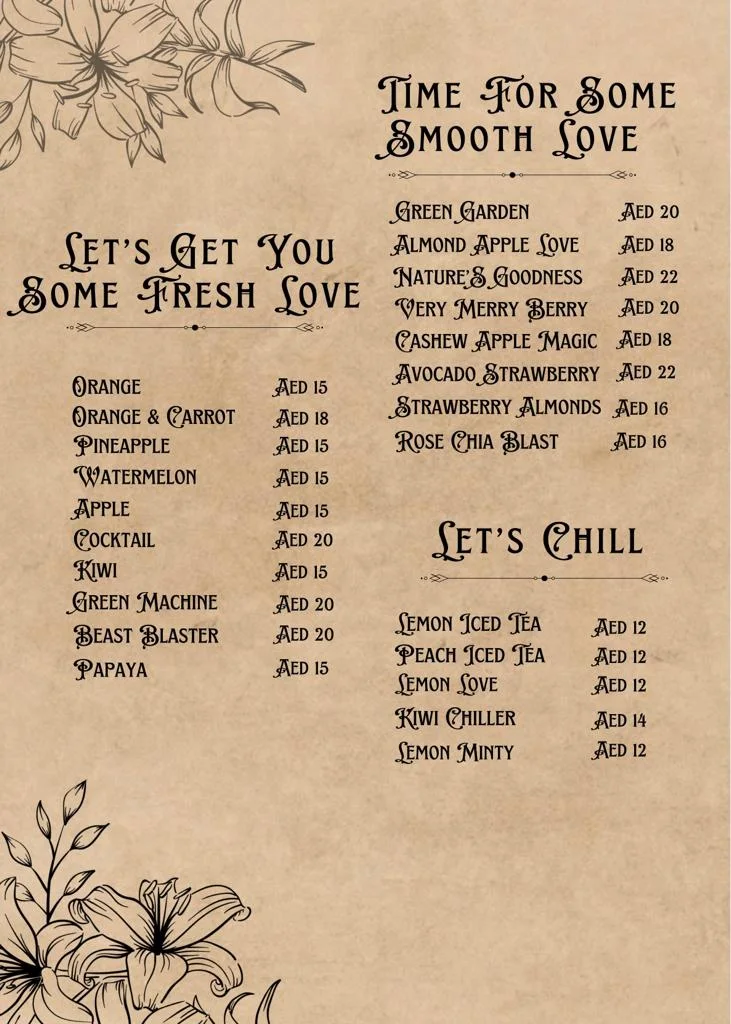 Let's Get You
Some Fresh Love
Orange Aed 15
Orange & Carrot Aed 18
Pineapple Aed 15
Watermelon Aed 15
Apple Aed 15
Cocktail Aed 20
Kiwi Aed 15
Green Machine Aed 20
Beast Blaster Aed 20
Papaya Aed 15
Time For Some
Smooth Love
Green Garden Aed 20
Almond Apple Love Aed 18
Nature'S Goodness Aed 22
Very Merry Berry Aed 20
Cashew Apple Magic Aed 18
Avocado Strawberry Aed 22
Strawberry Almonds Aed 16
Rose Chia Blast Aed 16
Let's Chill
Lemon Iced Tea Aed 12
Peach Iced Tea Aed 12
Lemon Love Aed 12
Kiwi Chiller Aed 14
Lemon Minty Aed 12